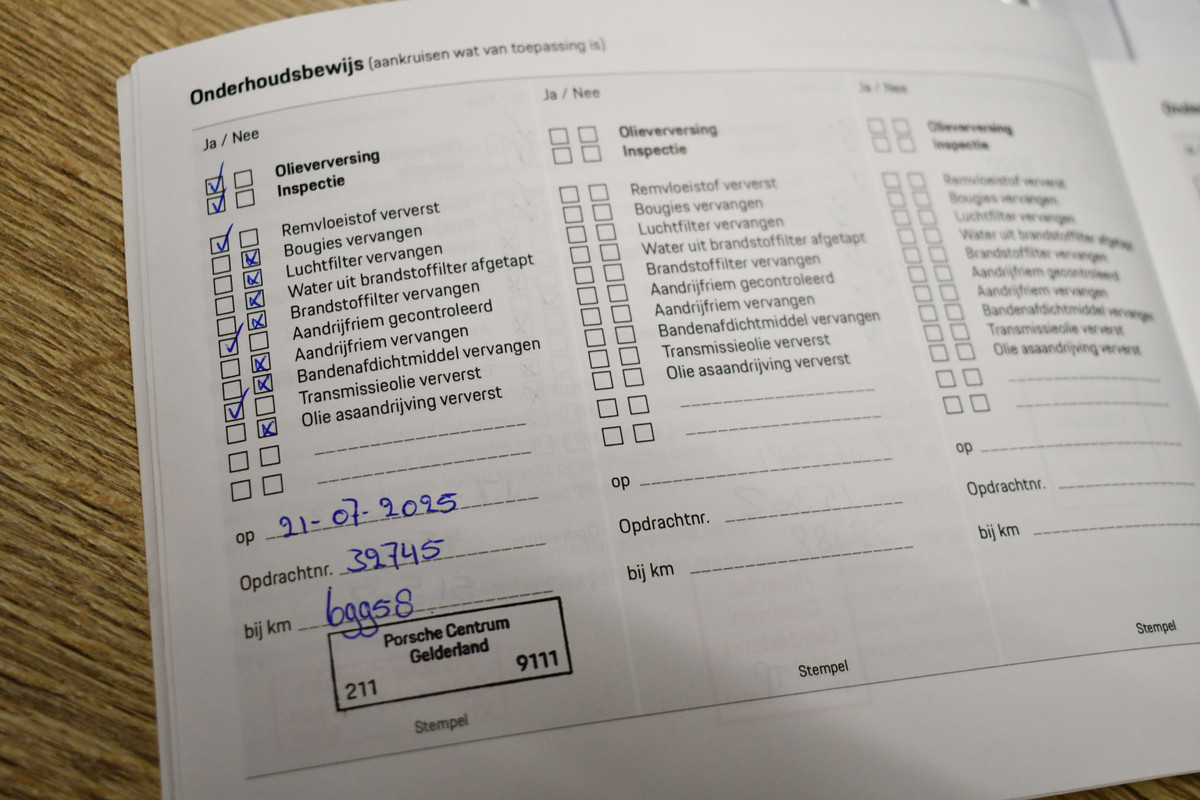 Onderhoudsbewijs (aankruisen wat van toepassing is)
Ja / Nee
Olieverversing
Inspectie
Remvloeistof ververst
Bougies vervangen
Luchtfilter vervangen
Water uit brandstoffilter afgetapt
Brandstoffilter vervangen
Aandrijfriem gecontroleerd
Aandrijfriem vervangen
Bandenafdichtmiddel vervangen
Transmissieolie ververst
Olie asaandrijving ververst
op 21-07-2025
Opdrachtnr. 39745
bij km 69958
Porsche Centrum
Gelderland
211 9111
Stempel
Ja / Nee
Olieverversing
Inspectie
Remvloeistof ververst
Bougies vervangen
Luchtfilter vervangen
Water uit brandstoffilter afgetapt
Brandstoffilter vervangen
Aandrijfriem gecontroleerd
Aandrijfriem vervangen
Bandenafdichtmiddel vervangen
Transmissieolie ververst
Olie asaandrijving ververst
op
Opdrachtnr.
bij km
Stempel
Ja / Nee
Olieverversing
Inspectie
Remvloeistof ververst
Bougies vervangen
Luchtfilter vervangen
Water uit brandstoffilter afgetapt
Brandstoffilter vervangen
Aandrijfriem gecontroleerd
Aandrijfriem vervangen
Bandenafdichtmiddel vervangen
Transmissieolie ververst
Olie asaandrijving ververst
op
Opdrachtnr.
bij km
Stempel